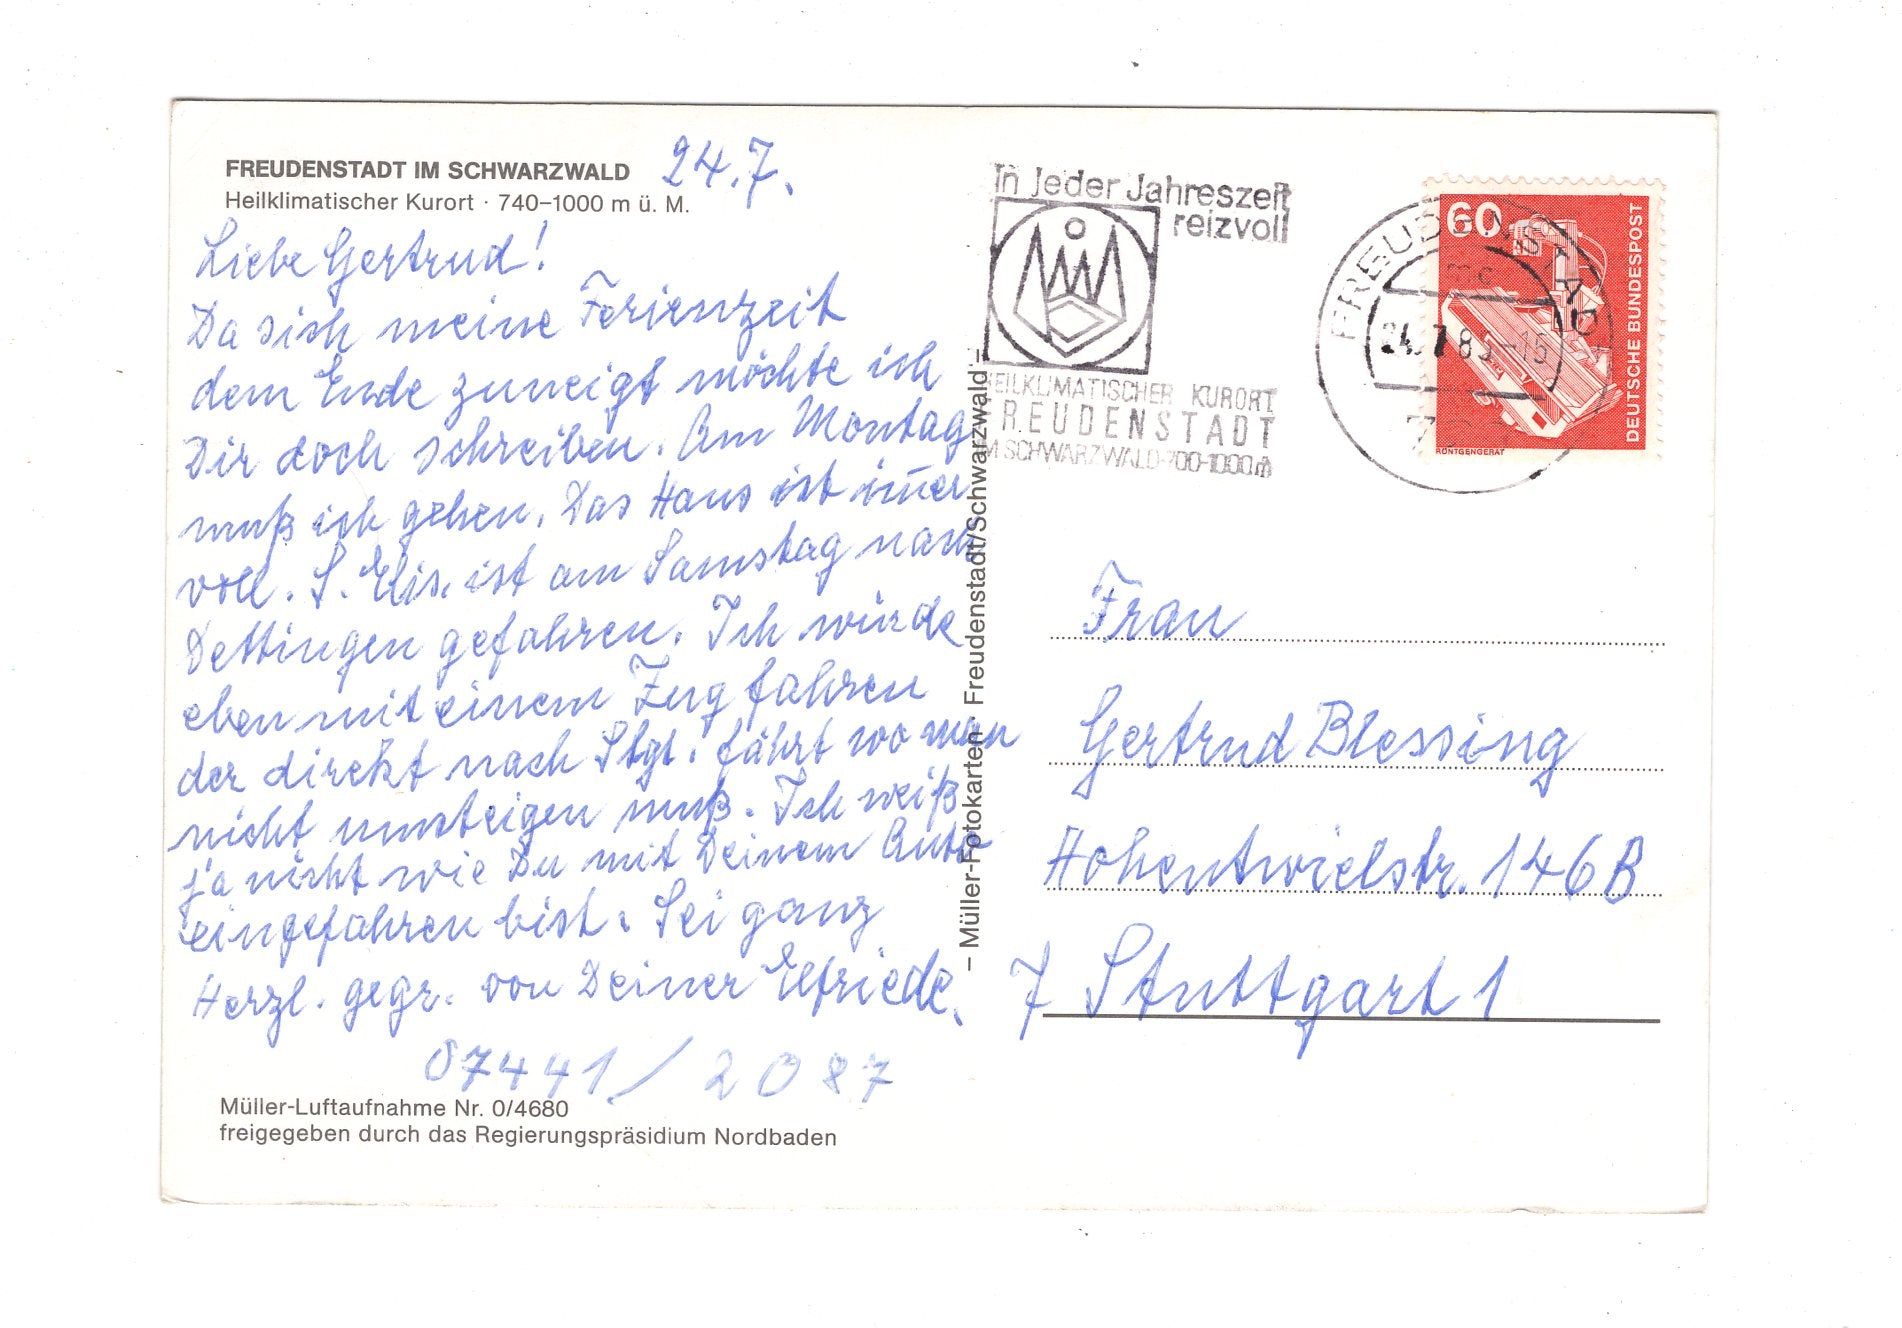 FREUDENSTADT IM SCHWARZWALD
Heilklimatischer Kurort · 740–1000 m ü. M.
24.7.
Liebe Gertrud!
Da sich meine Ferienzeit
dem Ende zuneigt möchte ich
Dir doch schreiben. Am Montag
muß ich gehen. Das Haus ist im̄er
voll. S. Elis. ist am Samstag nach
Dettingen gefahren. Ich würde
eben mit einem Zug fahren
der direkt nach Stgt. fährt wo man
nicht umsteigen muß. Ich weiß
ja nicht wie Du mit Deinem Auto
eingefahren bist. Sei ganz
Herzl. gegr. von Deiner Elfriede.
07441/2087
Müller-Luftaufnahme Nr. 0/4680
freigegeben durch das Regierungspräsidium Nordbaden
– Müller-Fotokarten · Freudenstadt/Schwarzwald –
In jeder Jahreszeit
reizvoll
HEILKLIMATISCHER KURORT
FREUDENSTADT
IM SCHWARZWALD-700-1000m
FREUDENSTADT
24.7.8 -15
60
DEUTSCHE BUNDESPOST
RÖNTGENGERÄT
Frau
Gertrud Blessing
Hohentwielstr. 146B
7 Stuttgart 1